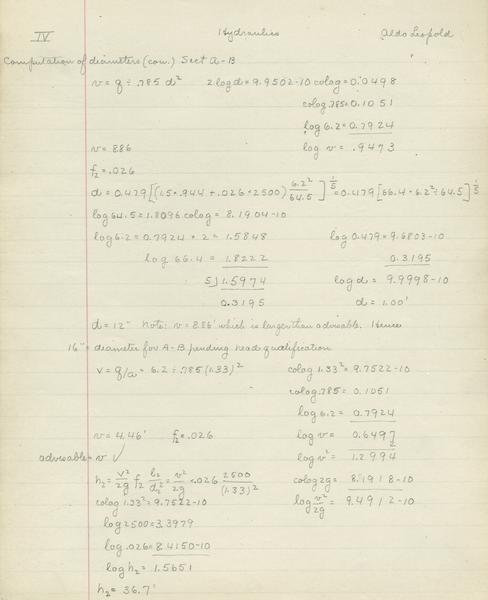 IV Hydraulics Aldo Leopold
Computation of diameters (con.) Sect A-B
v = q ÷ .785 d² 2 log d = 9.9502-10 colog = 0.0498
colog .785 = 0.1051
log 6.2 = 0.7924
v = 886 log v = .9473
f₂ = .026
d = 0.479 [(1.5 × .944 + .026 × 2500) 6.2²/64.5]^1/5 = 0.479 [66.4 × 6.2² ÷ 64.5]^1/5
log 64.5 = 1.8096 colog = 8.1904-10
log 6.2 = 0.7924 × 2 = 1.5848 log 0.479 = 9.6803-10
log 66.4 = 1.8222 0.3195
5)1.5974 log d = 9.9998-10
0.3195 d = 1.00'
d = 12" Note: v = 8.86' which is larger than advisable. Hence
16" = diameter for A-B pending head qualification
v = q/a = 6.2 ÷ .785 (1.33)² colog 1.33² = 9.7522-10
colog .785 = 0.1051
log 6.2 = 0.7924
v = 4.46' f₂ = .026 log v = 0.6497
2
advisable = v ✓ log v² = 1.2994
h₂ = v²/2g f₂ l₂/d₂ = v²/2g × .026 2500/(1.33)² colog 2g = 8.1918-10
colog 1.33² = 9.7522-10 log v²/2g = 9.4912-10
log 2500 = 3.3979
log .026 = 8.4150-10
log h₂ = 1.5651
h₂ = 36.7'